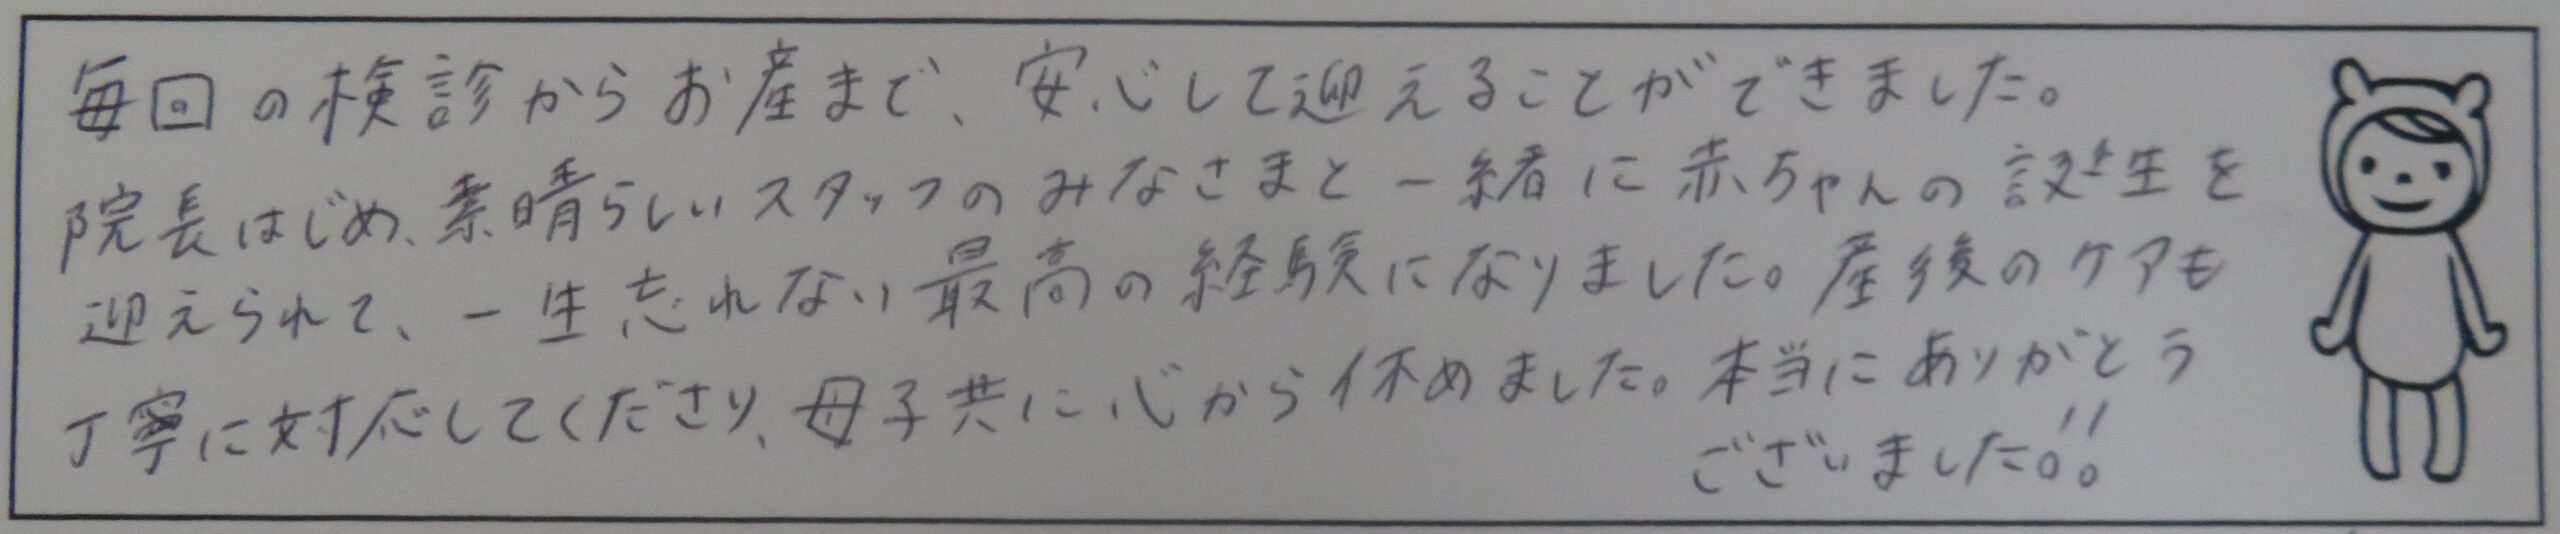 毎回の検診からお産まで、安心して迎えることができました。
院長はじめ、素晴らしいスタッフのみなさまと一緒に赤ちゃんの誕生を
迎えられて、一生忘れない最高の経験になりました。産後のケアも
丁寧に対応してくださり、母子共に心から休めました。本当にありがとう
ございました!!